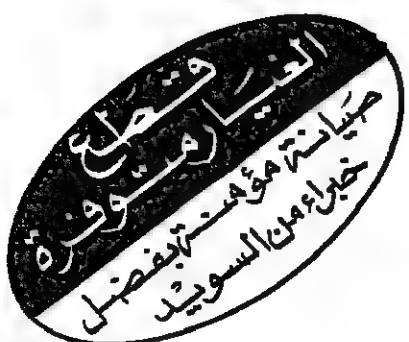 قطع
الغيار متوفرة
صيانة مؤمنة بفضل
خبراء من السويد